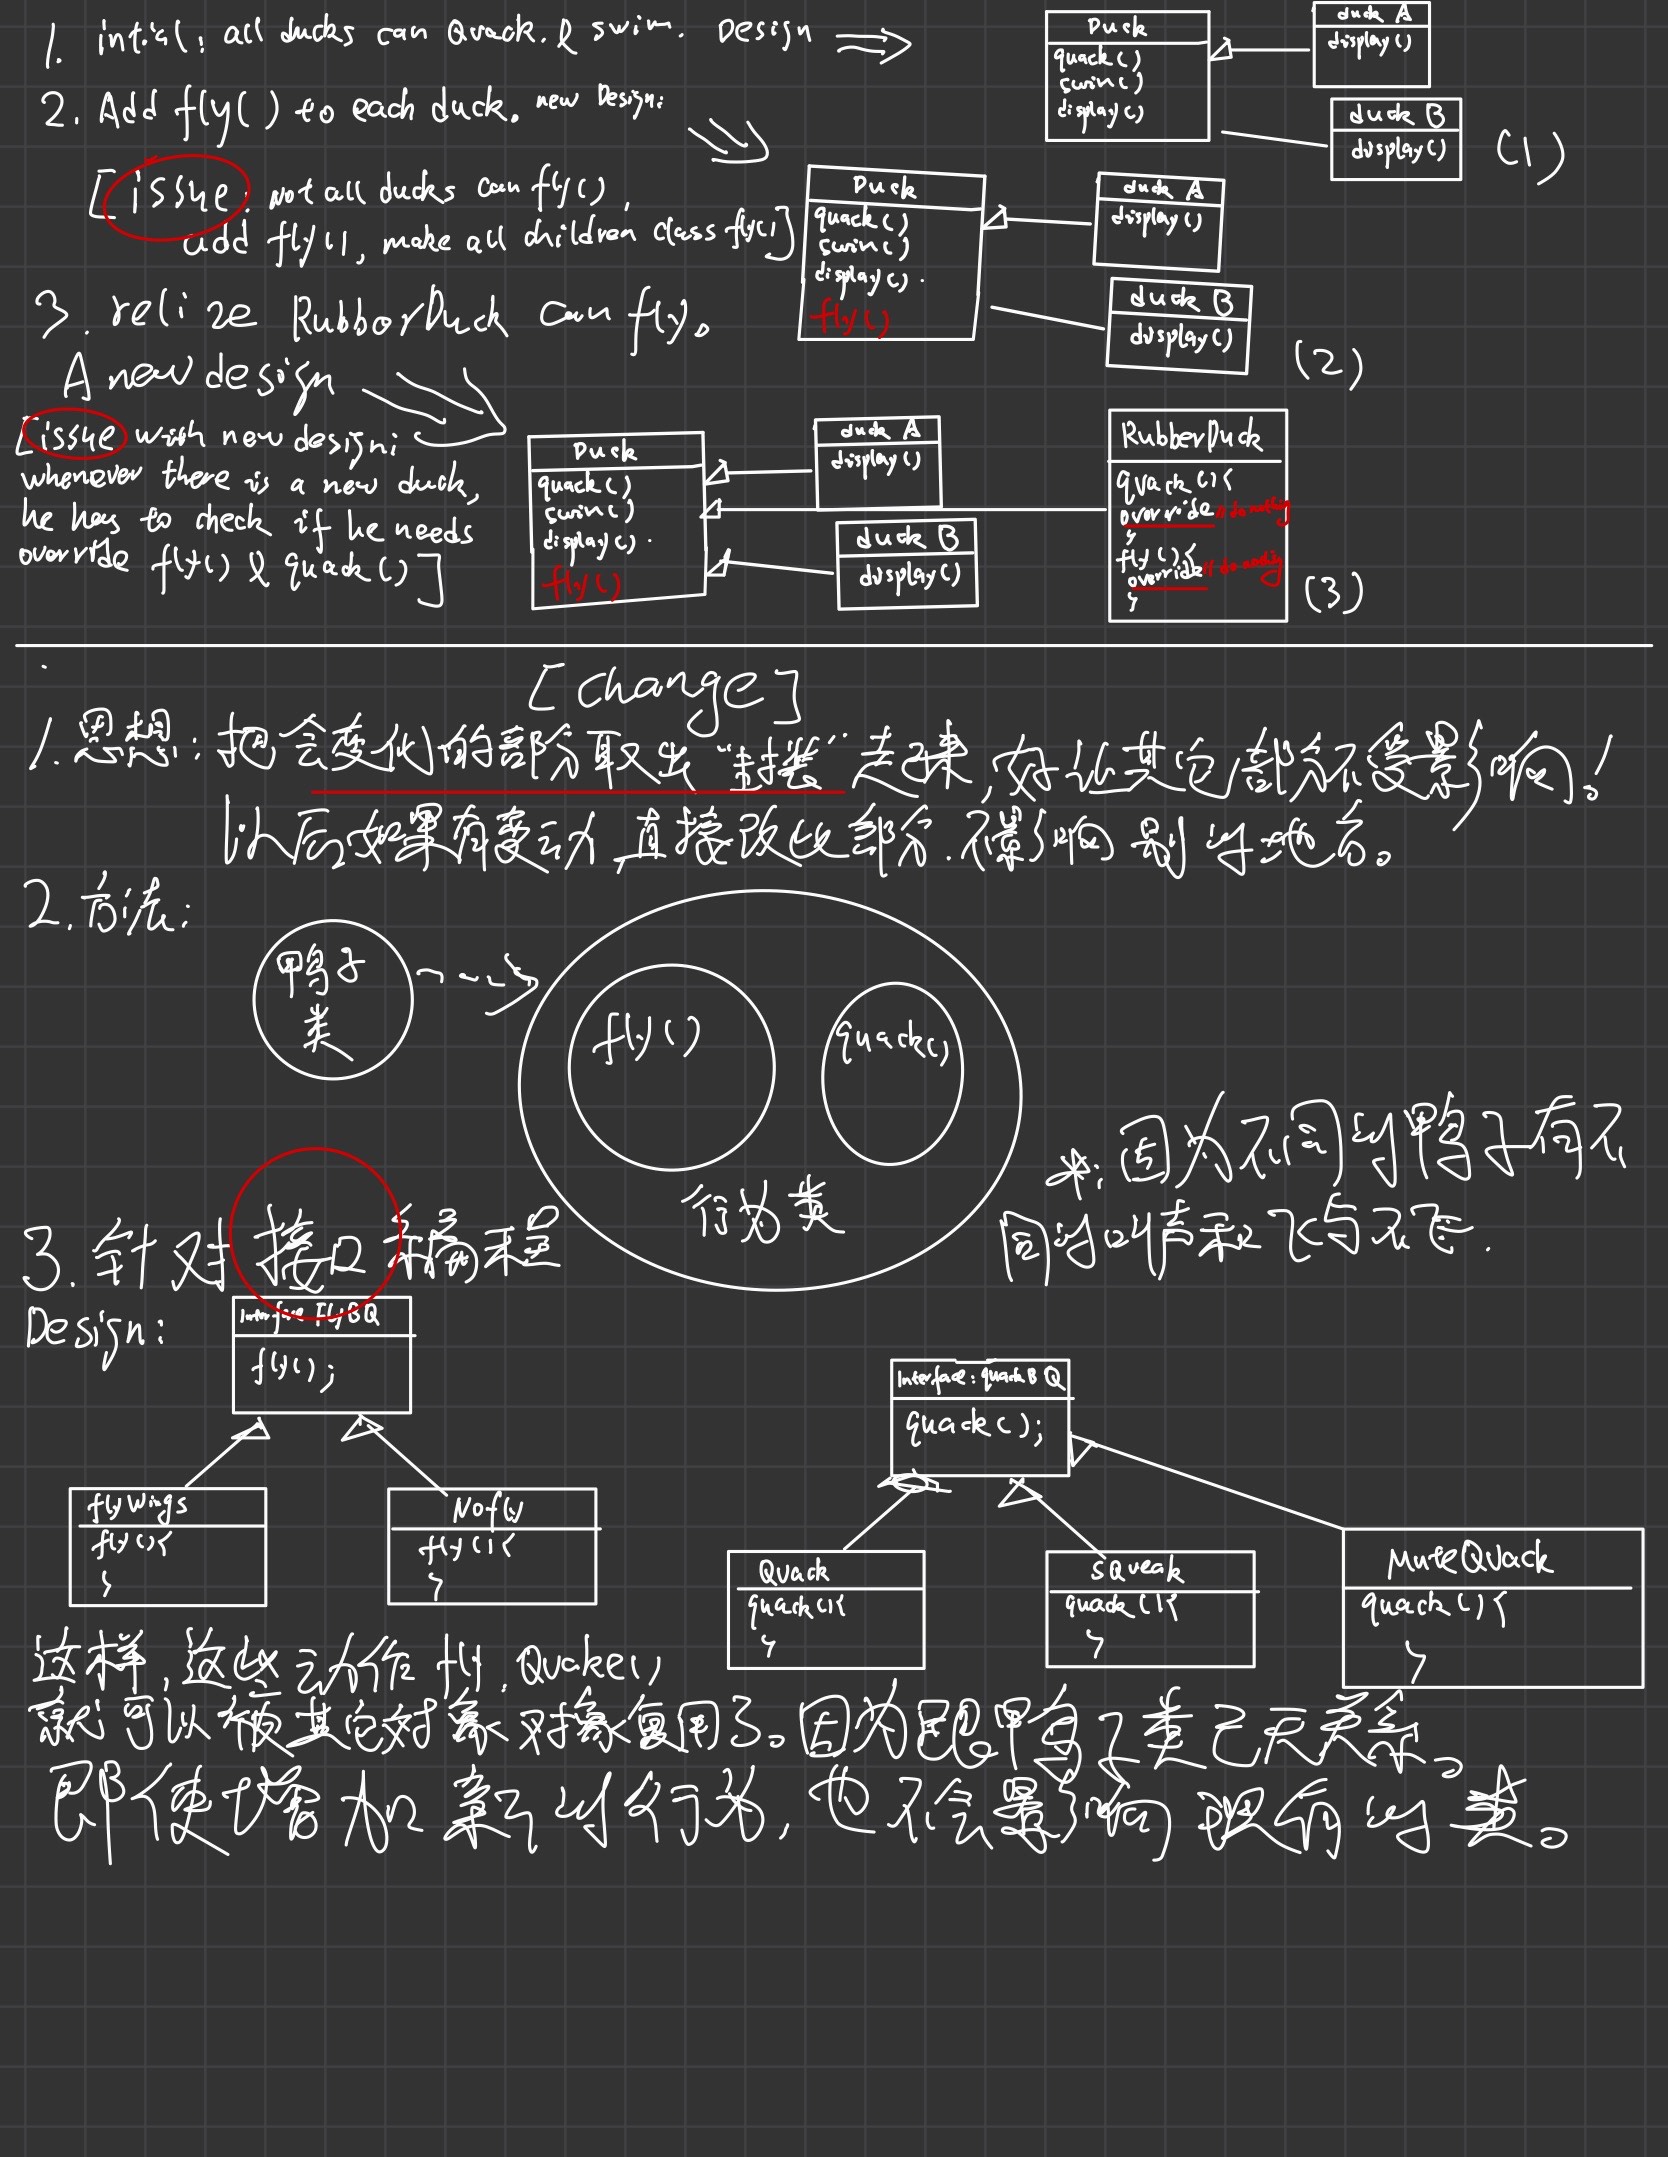 1. intial: all ducks can Quack. & swim. Design
Duck
quack()
swim()
display()
duck A
display()
duck B
display()
(1)
2. Add fly() to each duck. new Design:
[issue: Not all ducks can fly(),
add fly(), make all children class fly()]
Duck
quack()
swim()
display().
fly()
duck A
display()
duck B
display()
(2)
3. relize RubborDuck can fly.
A new design
[issue with new design:
whenever there is a new duck,
he has to check if he needs
override fly() & quack()]
Duck
quack()
swim()
display().
fly()
duck A
display()
duck B
display()
RubberDuck
quack(){
override // do nothing
}
fly(){
override // do nothing
}
(3)
[change]
1. 思想: 把会变化的部分取出“封装”起来,好让其它部分不受影响!
以后如果有变动,直接改此部分.不影响别的地方。
2. 方法:
鸭子
类
fly()
quack()
行为类
*: 因为不同的鸭子有不
同的叫声和飞与不飞.
3. 针对接口编程
Design:
Interface FlyBQ
fly();
flyWings
fly(){
}
Nofly
fly(){
}
Interface: quackBQ
quack();
Quack
quack(){
}
sQueak
quack(){
}
MuteQuack
quack(){
}
这样,这些动作 fly, Quake()
就可以被其它对象对象复用了。因为跟鸭子类已无关系。
即使增加新的行为,也不会影响现有的类。